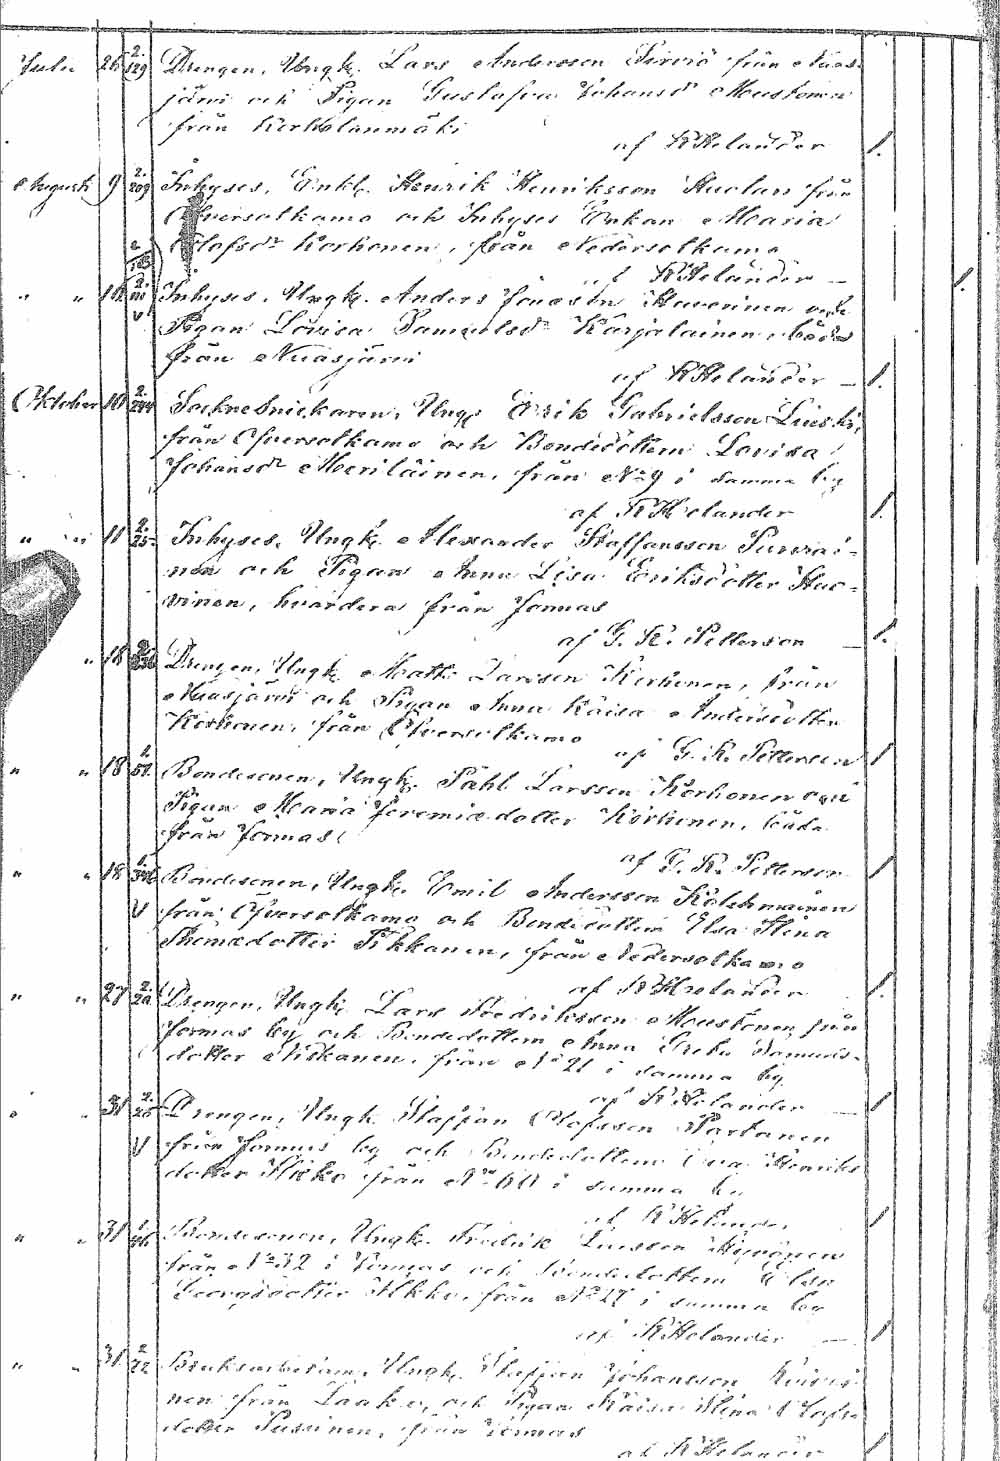 Julii 26 2. 129 Drengen, Ungk. Lars Andersson Sirviö från Nuas-
järvi och Pigan Gustafva Johansdr Mustonen
från Korholanmäki
af K Helander 1.
Augusti 9 2. 209 Inhyses, Enkl. Henrik Henriksson Huolan från
Öfversotkamo och Inhyses Enkan Maria
Olofsdr Korhonen, från Nedersotkamo
af K Helander — 1.
" " 16 2. Inhyses, Ungk. Anders Jonasson Haverinen och
Pigan Lovisa Samuelsdr Karjalainen, båda
från Nuasjärvi
af K Helander — 1.
Oktober 10 2. 244 Socknesnickaren, Ungk. Erik Gabrielsson
från Öfversotkamo och Bondedottern Lovisa
Johansdr Meriläinen, från No 9 i samma by
af K Helander 1.
" " 11 2. 25 Inhyses, Ungk. Alexander Staffansson Purvai-
nen och Pigan Anna Lisa Eriksdotter Huo-
vinen, hvardera från Jormas
af G. R. Petterson — 1.
" 18 Drengen, Ungk. Matts Larsson Korhonen, från
Nuasjärvi och Pigan Anna Kaisa Andersdotter
Korhonen, från Öfversotkamo
af G. R. Petterson 1
" " 18 2. 51. Bondesonen, Ungk. Påhl Larsson Korhonen och
Pigan Maria Jeremiædotter Korhonen, båda
från Jormas
af G. R. Petterson 1
" " 18 1. 346 Bondesonen, Ungk. Emil Andersson Kolehmainen
V från Öfversotkamo och Bondedottern Elsa Stina
Thomædotter Pikkanen, från Nedersotkamo
af K Helander 1.
" " 27 2. 20 Drengen, Ungk. Lars Fredriksson Mustonen från
Jormas by och Bondedottern Anna Greta Samuels-
dotter Niskanen, från No 21 i samma by
af K Helander — 1
" " 31 2. 25 Drengen, Ungk. Staffan Olofsson Partanen
V från Jormas by och Bondedottern Eva Henriks
dotter från No 60 i samma by
af K Helander 1
" " 31 1. 46 Bondesonen, Ungk. Fredrik Larsson Hyvönen
från No 32 i Jormas och Bondedottern Ulla
Georgsdotter från No 17 i samma by
af K Helander — 1
" " 31 2 22 Bruksarbetaren, Ungk. Staffan Johansson Koivu-
nen från Laaka, och Pigan Kaisa Stina Olofs
dotter Pussinen, från Jormas
af K Helander 1